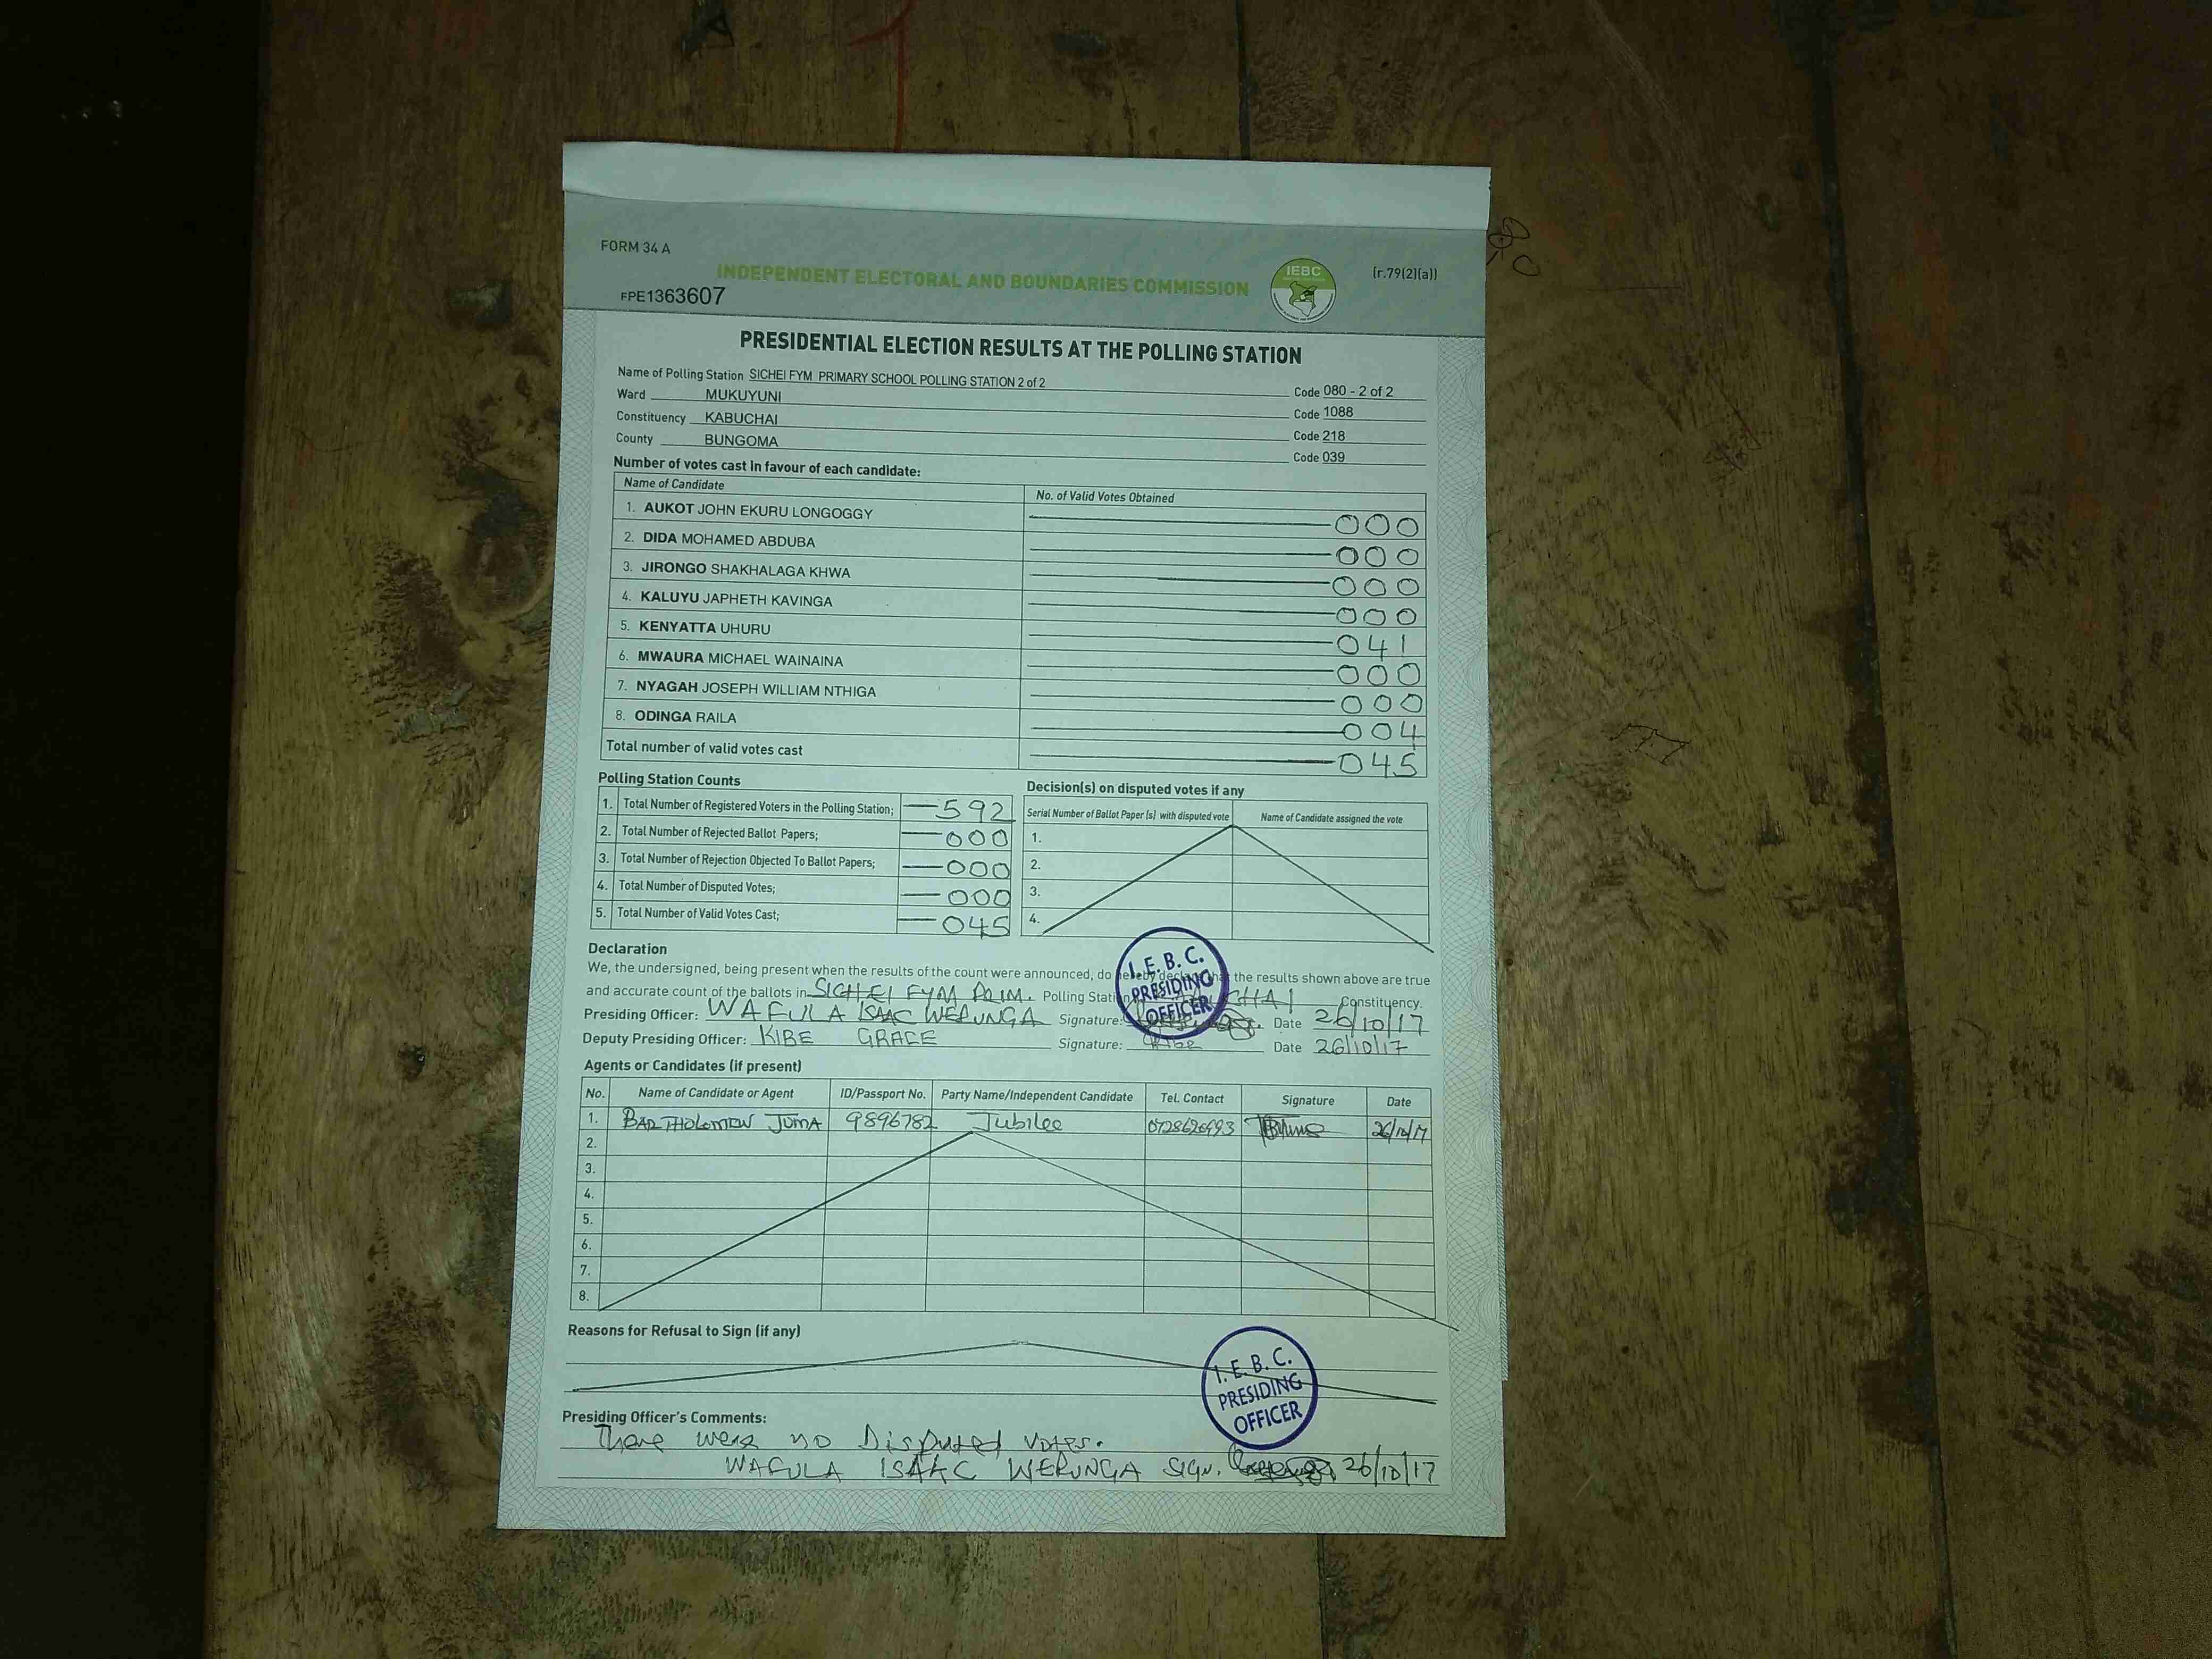 FORM 34 A
INDEPENDENT ELECTORAL AND BOUNDARIES COMMISSION
IEBC
(r.79(2)(a))
FPE1363607
PRESIDENTIAL ELECTION RESULTS AT THE POLLING STATION
Name of Polling Station SICHEI FYM PRIMARY SCHOOL POLLING STATION 2 of 2 Code 080 - 2 of 2
Ward MUKUYUNI Code 1088
Constituency KABUCHAI Code 218
County BUNGOMA Code 039
Number of votes cast in favour of each candidate:
Name of Candidate No. of Valid Votes Obtained
1. AUKOT JOHN EKURU LONGOGGY 000
2. DIDA MOHAMED ABDUBA 000
3. JIRONGO SHAKHALAGA KHWA 000
4. KALUYU JAPHETH KAVINGA 000
5. KENYATTA UHURU 041
6. MWAURA MICHAEL WAINAINA 000
7. NYAGAH JOSEPH WILLIAM NTHIGA 000
8. ODINGA RAILA 004
Total number of valid votes cast 045
Polling Station Counts
1. Total Number of Registered Voters in the Polling Station; 592
2. Total Number of Rejected Ballot Papers; 000
3. Total Number of Rejection Objected To Ballot Papers; 000
4. Total Number of Disputed Votes; 000
5. Total Number of Valid Votes Cast; 045
Decision(s) on disputed votes if any
Serial Number of Ballot Paper (s) with disputed vote Name of Candidate assigned the vote
1.
2.
3.
4.
Declaration
We, the undersigned, being present when the results of the count were announced, do hereby declare that the results shown above are true
and accurate count of the ballots in SICHEI FYM PRIM. Polling Station Constituency.
I. E. B. C. PRESIDING OFFICER
Presiding Officer: WAFULA ISAAC WERUNGA Signature: Date 26/10/17
Deputy Presiding Officer: KIBE GRACE Signature: Date 26/10/17
Agents or Candidates (if present)
No. Name of Candidate or Agent ID/Passport No. Party Name/Independent Candidate Tel. Contact Signature Date
1. BARTHOLOMEW JUMA 9896782 Jubilee 26/10/17
2.
3.
4.
5.
6.
7.
8.
Reasons for Refusal to Sign (if any)
I. E. B. C. PRESIDING OFFICER
Presiding Officer's Comments:
There were no Disputed votes.
WAFULA ISAAC WERUNGA SIGN. 26/10/17